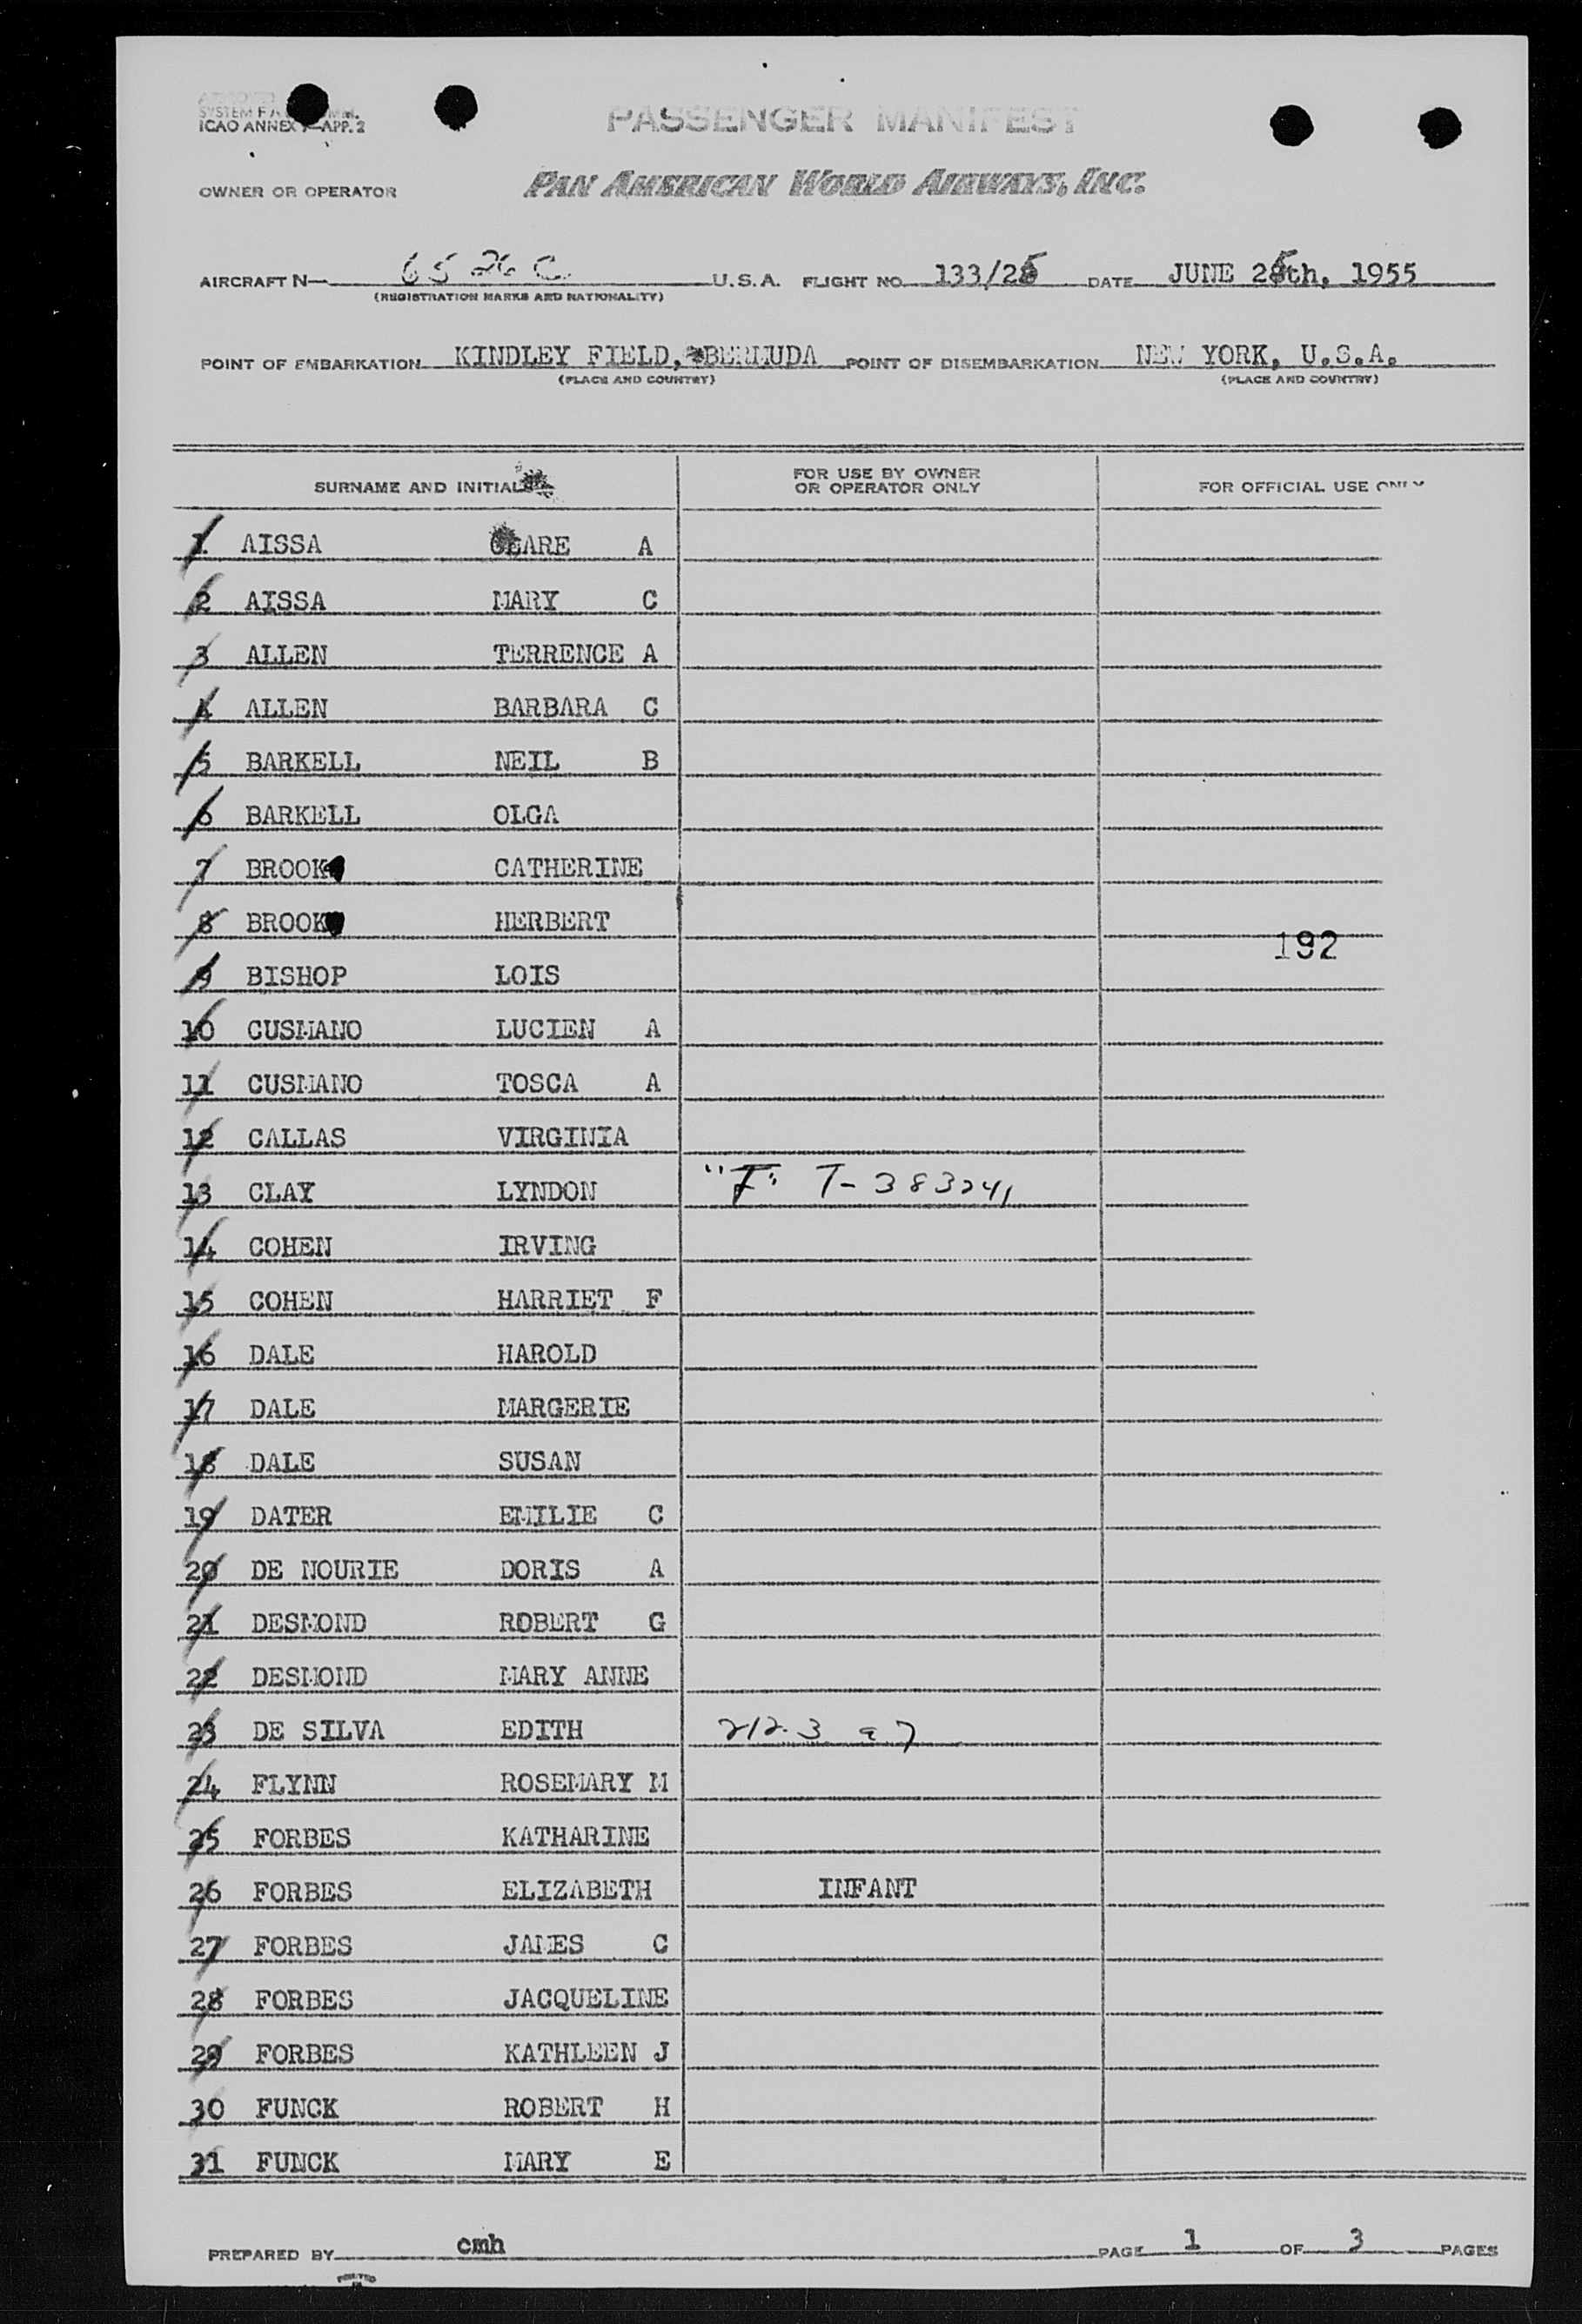 SYSTEM
ICAO ANNEX 9—APP. 2
PASSENGER MANIFEST
OWNER OR OPERATOR PAN AMERICAN WORLD AIRWAYS, INC.
AIRCRAFT N— 6526C U.S.A. FLIGHT NO. 133/25 DATE JUNE 25th, 1955
(REGISTRATION MARKS AND NATIONALITY)
POINT OF EMBARKATION KINDLEY FIELD, BERMUDA POINT OF DISEMBARKATION NEW YORK, U.S.A.
(PLACE AND COUNTRY) (PLACE AND COUNTRY)
SURNAME AND INITIALS FOR USE BY OWNER OR OPERATOR ONLY FOR OFFICIAL USE ONLY
1 AISSA A
2 AISSA MARY C
3 ALLEN TERRENCE A
4 ALLEN BARBARA C
5 BARKELL NEIL B
6 BARKELL OLGA
7 BROOK CATHERINE
8 BROOK HERBERT
192
9 BISHOP LOIS
10 CUSMANO LUCIEN A
11 CUSMANO TOSCA A
12 CALLAS VIRGINIA
13 CLAY LYNDON "F" T-383241
14 COHEN IRVING
15 COHEN HARRIET F
16 DALE HAROLD
17 DALE MARGERIE
18 DALE SUSAN
19 DATER EMILIE C
20 DE NOURIE DORIS A
21 DESMOND ROBERT G
22 DESMOND MARY ANNE
23 DE SILVA EDITH 212.3 a 7
24 FLYNN ROSEMARY M
25 FORBES KATHARINE
26 FORBES ELIZABETH INFANT
27 FORBES JAMES C
28 FORBES JACQUELINE
29 FORBES KATHLEEN J
30 FUNCK ROBERT H
31 FUNCK MARY E
PREPARED BY cmh PAGE 1 OF 3 PAGES